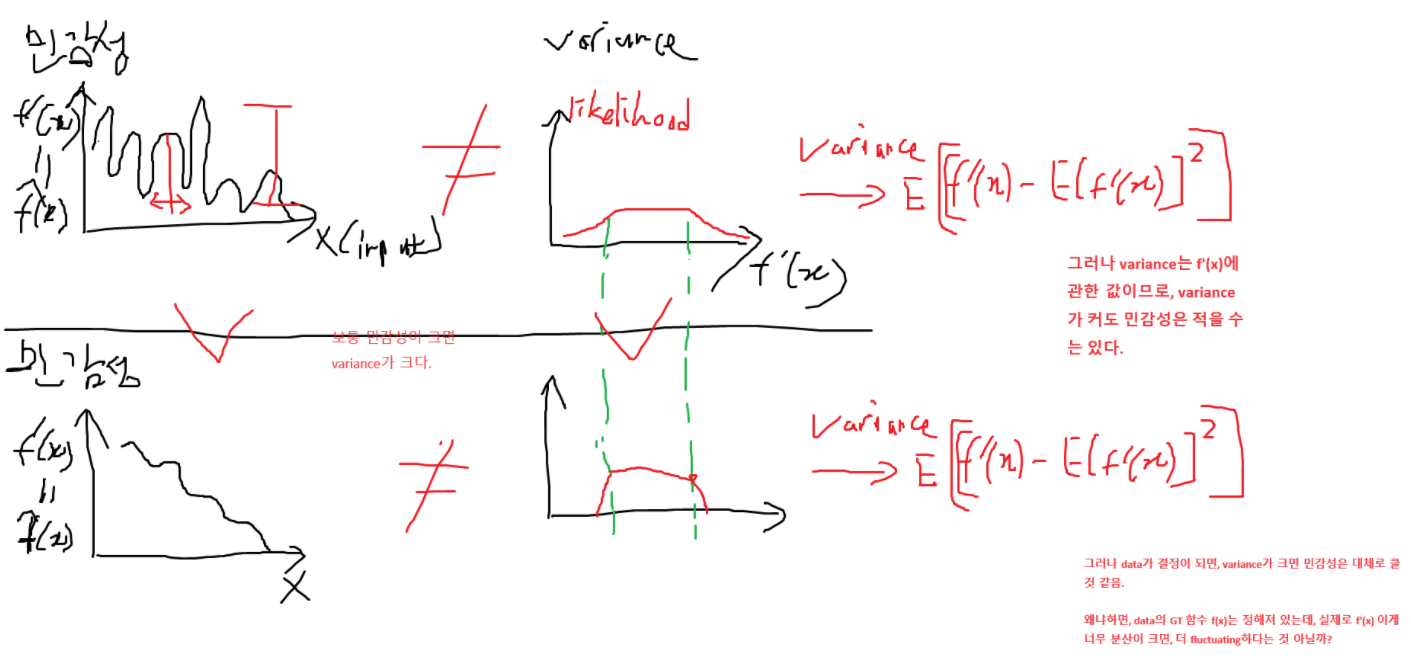 민감성
variance
f'(x)
=
f̂(x)
x(input)
≠
likelihood
f'(x)
variance
→ E[[f'(x) - E(f'(x)]²]
그러나 variance는 f'(x)에
관한 값이므로, variance
가 커도 민감성은 적을 수
는 있다.
보통 민감성이 크면
variance가 크다.
민감성
f'(x)
=
f̂(x)
X
≠
variance
→ E[[f'(x) - E(f'(x)]²]
그러나 data가 결정이 되면, variance가 크면 민감성은 대체로 클
것 같음.
왜냐하면, data의 GT 함수 f(x)는 정해져 있는데, 실제로 f'(x) 이게
너무 분산이 크면, 더 fluctuating하다는 것 아닐까?